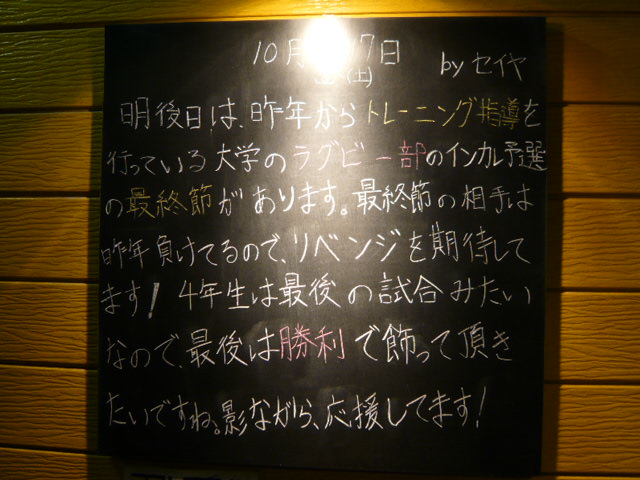 10月 7日 by セイヤ
(土)
明後日は、昨年からトレーニング指導を
行っている大学のラグビー部のインカレ予選
の最終節があります。最終節の相手は
昨年負けてるので、リベンジを期待して
ます! 4年生は最後の試合みたい
なので、最後は勝利で飾って頂き
たいですね。影ながら、応援してます!